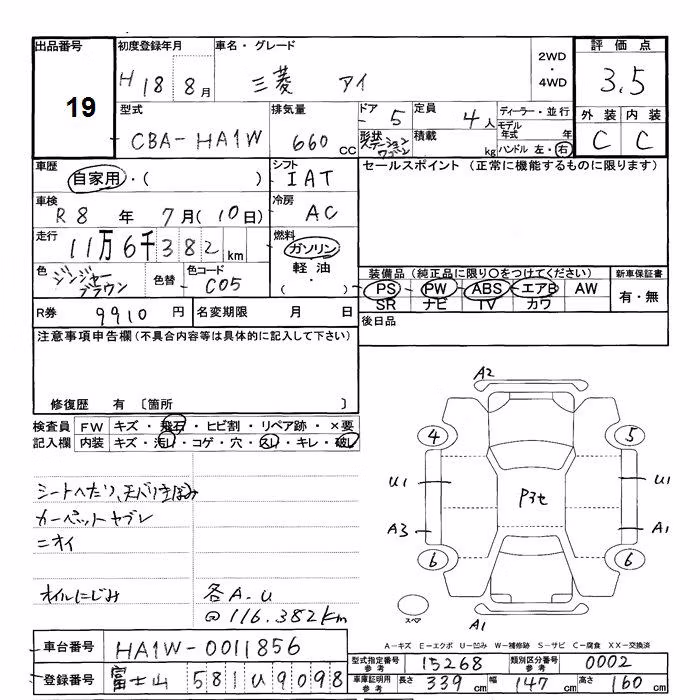 出品番号
19
初度登録年月
H 18 8月
車名・グレード
三菱 アイ
2WD
・
4WD
評価点
3.5
型式
CBA-HA1W
排気量
660 cc
ドア
5
形状
ステーションワゴン
定員
4人
積載
kg
ディーラー・並行
モデル年式 年
ハンドル 左・右
外装 内装
C C
車歴
自家用・( )
シフト
IAT
セールスポイント (正常に機能するものに限ります)
車検
R8年 7月(10日)
冷房
AC
走行
11万6千382km
燃料
ガソリン
軽油
( )
色
ジンジャーブラウン
色替
色コード
C05
装備品 (純正品に限り○をつけてください)
PS PW ABS エアB AW
SR ナビ TV カワ
新車保証書
有・無
R券 9910円
名変期限 月 日
後日品
注意事項申告欄(不具合内容等は具体的に記入して下さい)
修復歴 有 〔箇所 〕
検査員
記入欄
FW キズ・飛石・ヒビ割・リペア跡・×要
内装 キズ・汚れ・コゲ・穴・スレ・キレ・破れ
シートヘたり、天バリ
カーペットヤブレ
ニオイ
オイルにじみ
各A.U
@116.382Km
A2
4 5
U1 U1
P3セ
A3 A1
6 6
スペア
A1
A-キズ E-エクボ U-凹み W-補修跡 S-サビ C-腐食 XX-交換済
車台番号 HA1W-0011856
登録番号 富士山 581 う 9098
型式指定番号 参考 15268
類別区分番号 参考 0002
車庫証明用 参考 長さ 339cm 幅 147cm 高さ 160cm